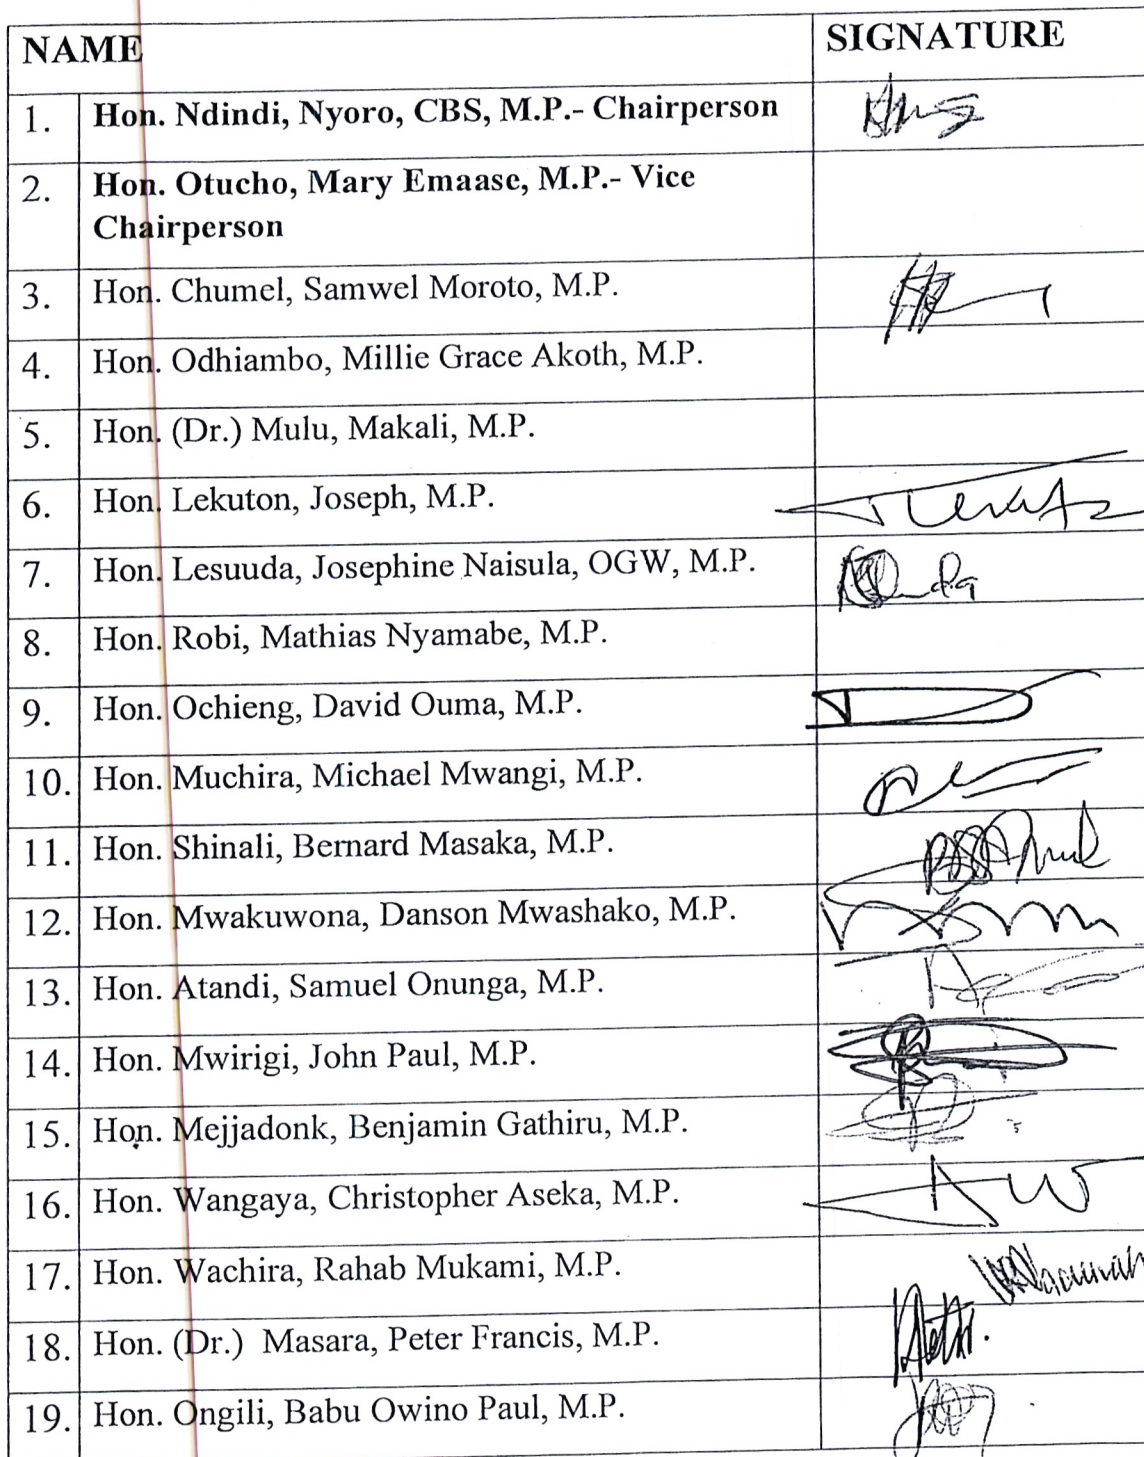 NAME SIGNATURE
1. Hon. Ndindi, Nyoro, CBS, M.P.- Chairperson
2. Hon. Otucho, Mary Emaase, M.P.- Vice
Chairperson
3. Hon. Chumel, Samwel Moroto, M.P.
4. Hon. Odhiambo, Millie Grace Akoth, M.P.
5. Hon. (Dr.) Mulu, Makali, M.P.
6. Hon. Lekuton, Joseph, M.P.
7. Hon. Lesuuda, Josephine Naisula, OGW, M.P.
8. Hon. Robi, Mathias Nyamabe, M.P.
9. Hon. Ochieng, David Ouma, M.P.
10. Hon. Muchira, Michael Mwangi, M.P.
11. Hon. Shinali, Bernard Masaka, M.P.
12. Hon. Mwakuwona, Danson Mwashako, M.P.
13. Hon. Atandi, Samuel Onunga, M.P.
14. Hon. Mwirigi, John Paul, M.P.
15. Hon. Mejjadonk, Benjamin Gathiru, M.P.
16. Hon. Wangaya, Christopher Aseka, M.P.
17. Hon. Wachira, Rahab Mukami, M.P.
18. Hon. (Dr.) Masara, Peter Francis, M.P.
19. Hon. Ongili, Babu Owino Paul, M.P.